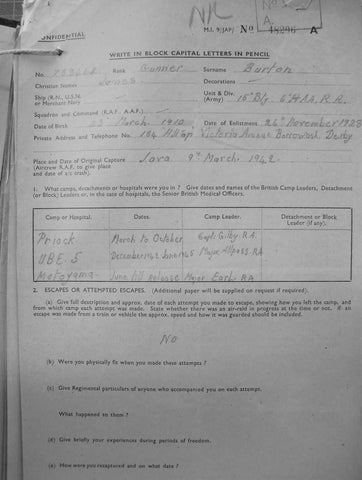 CONFIDENTIAL
M.I. 9/JAP/ No A
WRITE IN BLOCK CAPITAL LETTERS IN PENCIL
No. Rank Gunner Surname Burton
Christian Names James Decorations
Ship (R.N., U.S.N. or Merchant Navy Unit & Div. (Army) R.A.
Squadron and Command (R.A.F. A.A.F.)
Date of Birth March Date of Enlistment November
Private Address and Telephone No. 104 Victoria Avenue Borrowash Derby
Place and Date of Original Capture Java 9th March 1942
(Aircrew R.A.F. to give place and date of a/c crash).
1. What camps, detachments or hospitals were you in ? Give dates and names of the British Camp Leaders, Detachment (or Block) Leaders or, in the case of hospitals, the Senior British Medical Officers.
Camp or Hospital. Dates. Camp Leader. Detachment or Block Leader (if any).
Priock March to October Capt. Gilby R.A.
UBE. 5 December June Major R.A.
Motoyama June till release Major R.A
2. ESCAPES OR ATTEMPTED ESCAPES. (Additional paper will be supplied on request if required).
(a) Give full description and approx. date of each attempt you made to escape, showing how you left the camp, and
from which camp each attempt was made. State whether there was an air-raid in progress at the time or not. If an
escape was made from a train or vehicle the approx. speed and how it was guarded should be included.
NO
(b) Were you physically fit when you made these attempts ?
(c) Give Regimental particulars of anyone who accompanied you on each attempt.
What happened to them ?
(d) Give briefly your experiences during periods of freedom.
(e) How were you recaptured and on what date ?